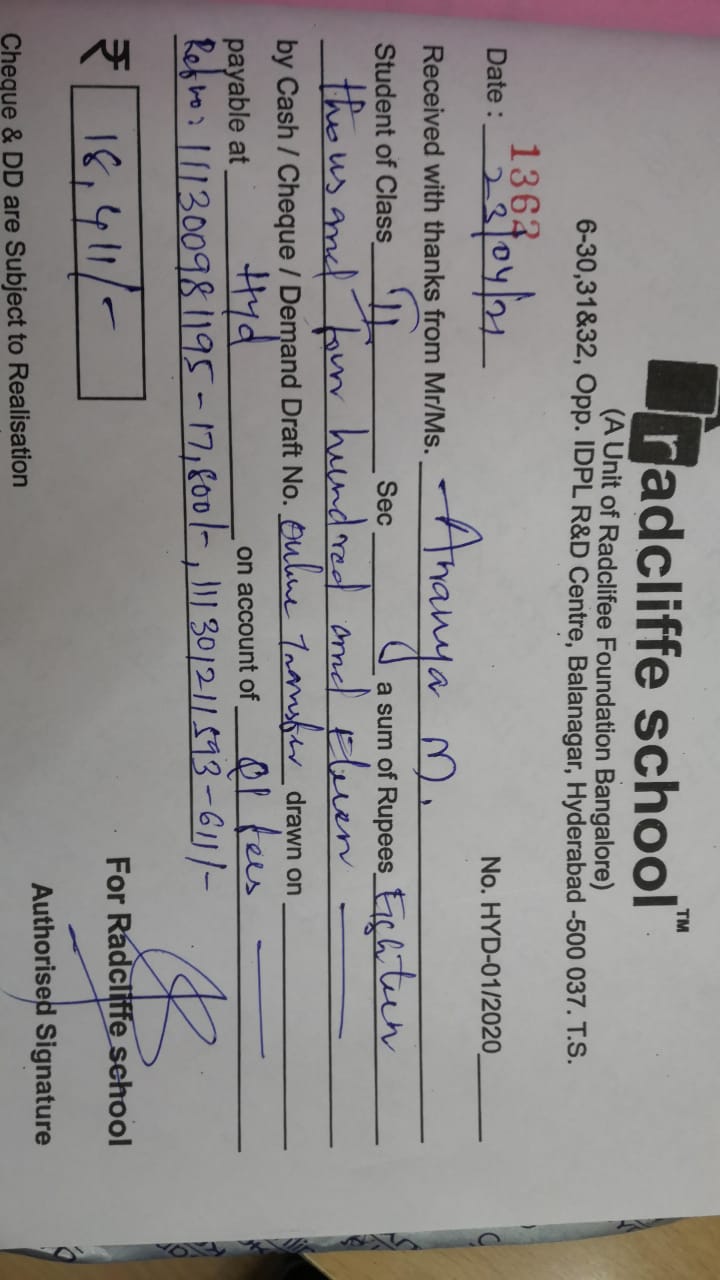 radcliffe school™
(A Unit of Radcliffee Foundation Bangalore)
6-30,31&32, Opp. IDPL R&D Centre, Balanagar, Hyderabad -500 037. T.S.
1362 No. HYD-01/2020
Date : 23/04/21
Received with thanks from Mr/Ms. Ananya M.
Student of Class II Sec a sum of Rupees Eighteen
thousand four hundred and Eleven
by Cash / Cheque / Demand Draft No. Online Transfer drawn on
payable at Hyd on account of Q1 fees
Ref no: 111300981195 - 17,800/-, 111301211593 - 611/-
₹ 18,411/- For Radcliffe school
Authorised Signature
Cheque & DD are Subject to Realisation